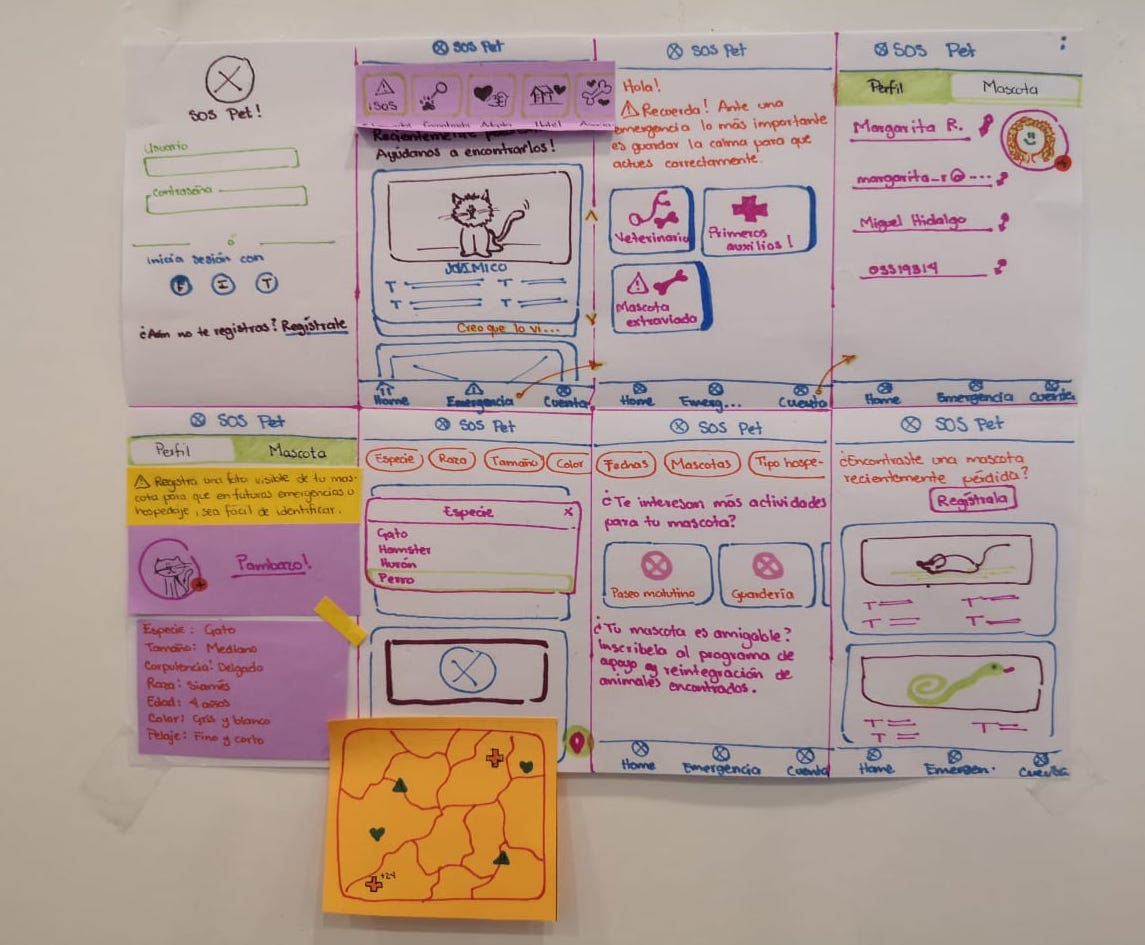 SOS Pet!
Usuario
Contraseña
ó
Inicia sesión con
F I T
¿Aún no te registras? Regístrate
SOS Pet
¡SOS
Hotel
Recientemente
Ayúdanos a encontrarlos!
T T
T T
Creo que lo vi...
Home Emergencia Cuenta
SOS Pet
Hola!
Recuerda! Ante una
emergencia lo más importante
es guardar la calma para que
actues correctamente.
Veterinario
Primeros
auxilios!
Mascota
extraviada
Home Emerg... Cuenta
SOS Pet
Perfil Mascota
Margarita R.
margarita_r@...
Miguel Hidalgo
03319314
Home Emergencia Cuenta
SOS Pet
Perfil Mascota
Registra una foto visible de tu mas-
cota para que en futuras emergencias u
hospedaje, sea fácil de identificar.
Pambazo!
Especie: Gato
Tamaño: Mediano
Corpulencia: Delgado
Raza: Siamés
Edad: 4 años
Color: Gris y blanco
Pelaje: Fino y corto
SOS Pet
Especie Raza Tamaño Color
Especie X
Gato
Hamster
Hurón
Perro
+24
SOS Pet
Fechas Mascotas Tipo hospe-
¿Te interesan más actividades
para tu mascota?
Paseo matutino Guardería
¿Tu mascota es amigable?
Inscribela al programa de
apoyo y reintegración de
animales encontrados.
Home Emergencia Cuenta
SOS Pet
¿Encontraste una mascota
recientemente pérdida?
Regístrala
T T
T T
T T
T
Home Emergen. Cuenta